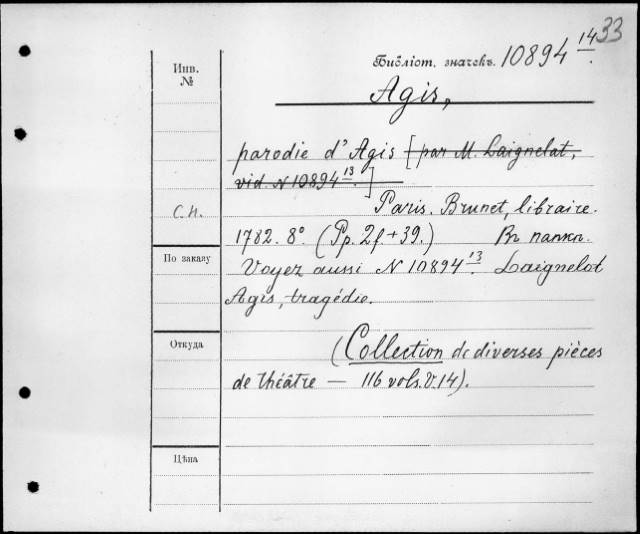 33
Библіот. значекъ. 10894 14.
Инв.
№
Agis,
parodie d'Agis [par M. Laignelat,
vid. N 10894 13]
Paris. Brunet, libraire.
1782. 8°. (Pp. 2f. + 39.) Въ папкѣ.
По заказу
Voyez aussi N 10894 13. Laignelot
Agis, tragédie.
Откуда
(Collection de diverses pièces
de théâtre — 116 vols. V. 14).
Цѣна